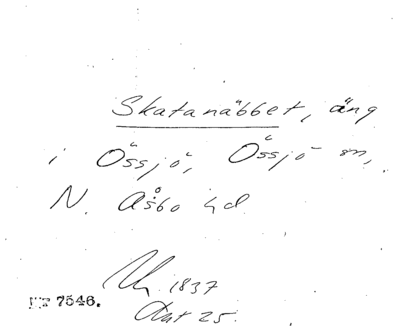 Skatanäbbet, äng
i Össjö, Össjö sn,
N. Åsbo hd
1837
Akt 25
7546.